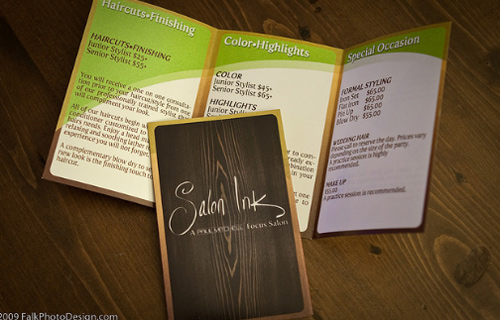 Haircuts•Finishing
HAIRCUTS•FINISHING
Junior Stylist $25+
Senior Stylist $55+
You will receive a one on one consulta-
tion prior to your haircut/style from one
of our professionally trained stylist that
will compliment your look.
All of our haircuts begin
conditioner customized
hairs needs. Enjoy a head
relaxing and soothing
experience you will not forget.
A complementary blow dry
new look is the finishing touch
haircut.
Color•Highlights
COLOR
Junior Stylist $45+
Senior Stylist $65+
HIGHLIGHTS
Special Occasion
FORMAL STYLING
Iron Set $65.00
Flat Iron $65.00
Pin Up $65.00
Blow Dry $55.00
WEDDING HAIR
Please call to reserve the day. Prices vary
depending on the size of the party.
A practice session is highly
recommended.
MAKE UP
$55.00
A practice session is recommended.
Salon Ink
A PAUL MITCHELL Focus Salon
2009 FalkPhotoDesign.com